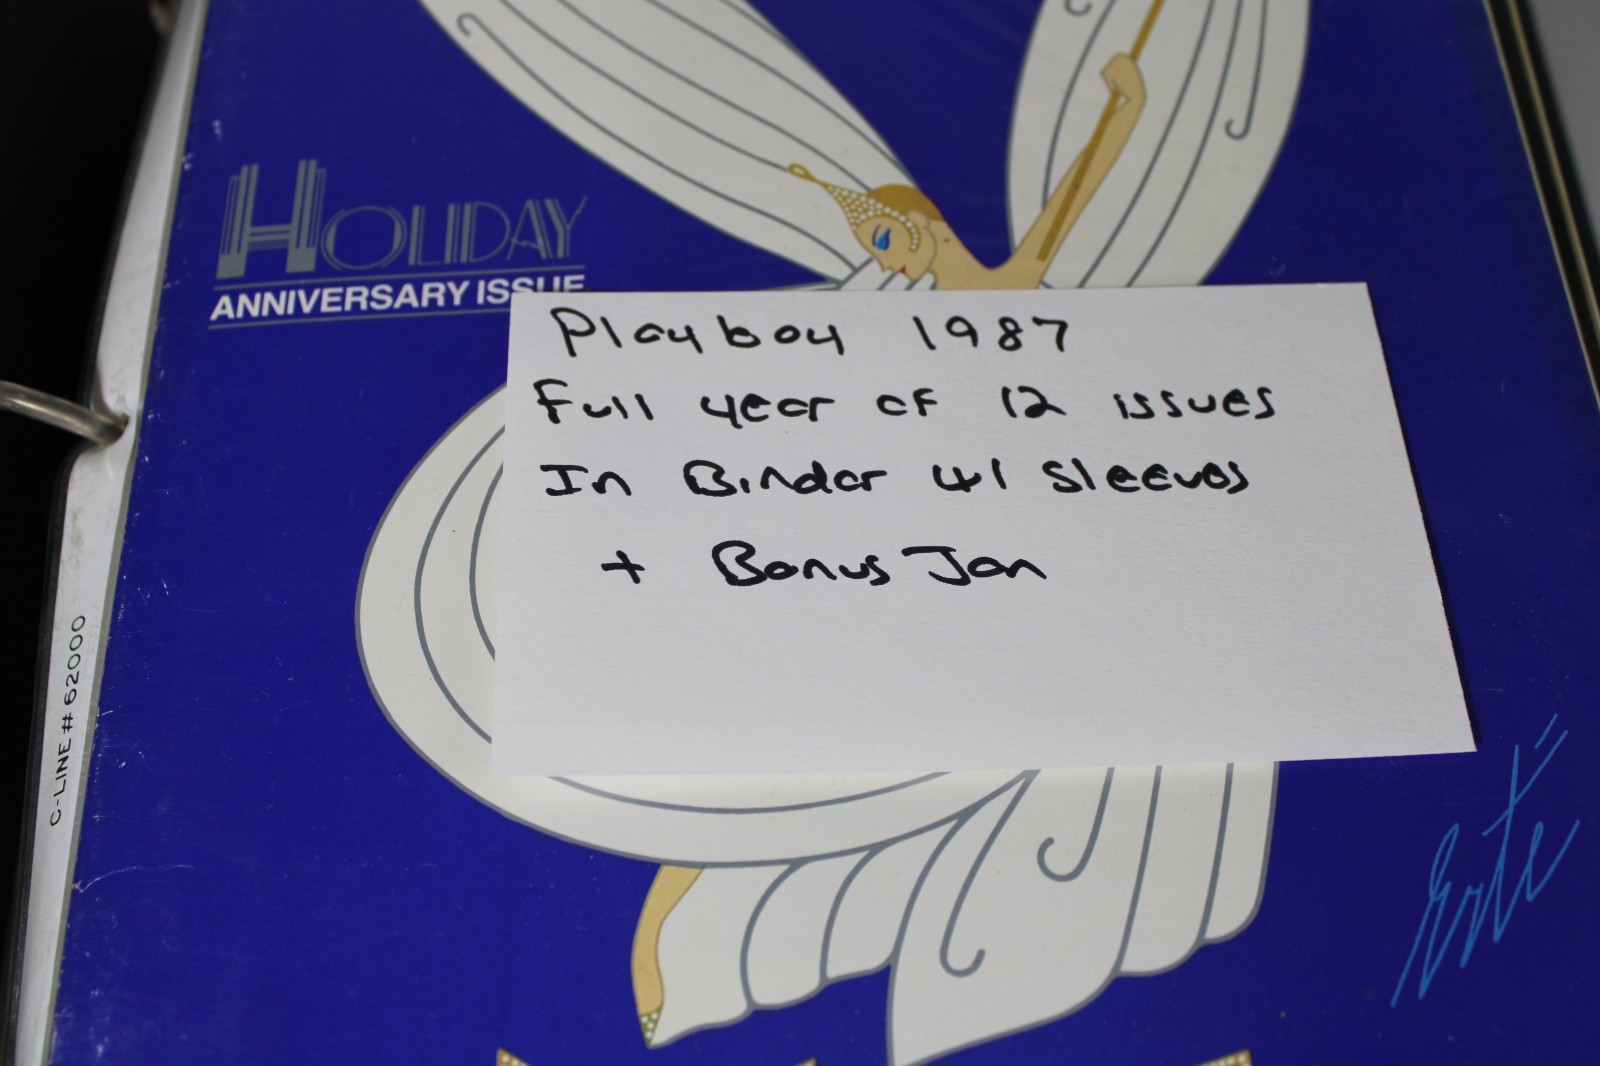 HOLIDAY
ANNIVERSARY ISSUE
Playboy 1987
Full year of 12 issues
In Binder w/ sleeves
+ Bonus Jan
C-LINE # 62000
Erté